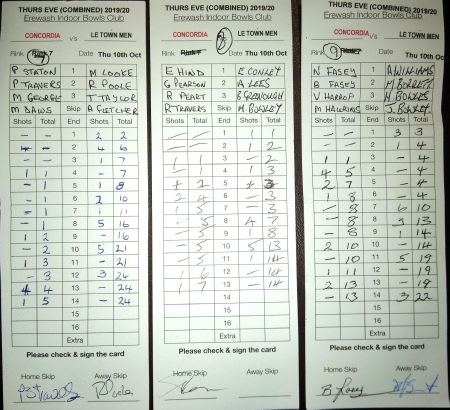 THURS EVE (COMBINED) 2019/20
Erewash Indoor Bowls Club
CONCORDIA v's LE TOWN MEN
Rink Date Thu 10th Oct
P STATON 1 M COOKE
P TRAVERS 2 R POOLE
M GEORGE 3 T TAYLOR
M DAWS Skip A FLETCHER
Shots Total End Shots Total
- - 1 2 2
- - 2 4 6
- - 3 1 7
1 1 4 - 7
- 1 5 1 8
- 1 6 2 10
- 1 7 1 11
- 1 8 5 16
1 2 9 - 16
- 2 10 5 21
1 3 11 - 21
- 3 12 3 24
4 13 - 24
1 5 14 - 24
15
16
Extra
Please check & sign the card
Home Skip Away Skip
THURS EVE (COMBINED) 2019/20
Erewash Indoor Bowls Club
CONCORDIA v's LE TOWN MEN
Rink 8 Date Thu 10th Oct
E HIND 1 E CONLEY
G PEARSON 2 A LEES
R PEART 3 B GREENOUGH
R TRAVERS Skip M BOWLEY
Shots Total End Shots Total
- - 1 1 1
- - 2 1 2
1 1 3 - 2
- 1 4 1 3
1 5 - 3
2 4 6 - 3
1 5 7 - 3
- 5 8 4 7
- 5 9 1 8
- 5 10 5 13
- 5 11 1 14
1 6 12 - 14
1 7 13 - 14
14
15
16
Extra
Please check & sign the card
Home Skip Away Skip
THURS EVE (COMBINED) 2019/20
Erewash Indoor Bowls Club
CONCORDIA v's LE TOWN MEN
Rink 9 Date Thu 10th Oct
N FASEY 1 A WILLIAMS
B FASEY 2 M
V HARROP 3 H BOWLES
M HAWKINS Skip J
Shots Total End Shots Total
- - 1 3 3
- - 2 1 4
1 1 3 - 4
4 5 4 - 4
2 7 5 - 4
1 8 6 - 4
- 8 7 6 10
- 8 8 3 13
- 8 9 1 14
2 10 10 - 14
- 10 11 5 19
1 11 12 - 19
2 13 13 - 19
- 13 14 3 22
15
16
Extra
Please check & sign the card
Home Skip Away Skip